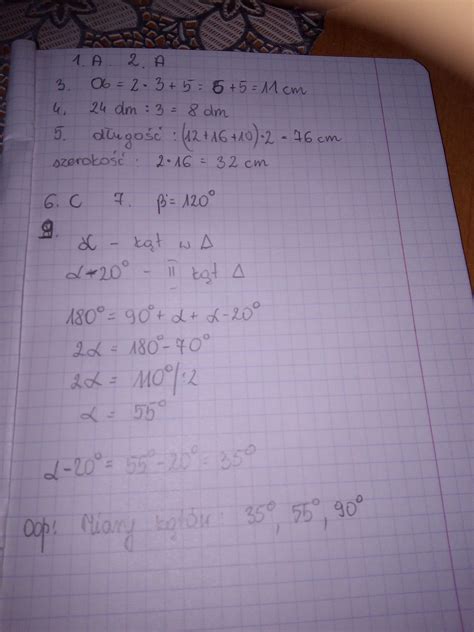 1. A 2. A
3. Ob = 2 · 3 + 5 = 6 + 5 = 11 cm
4. 24 dm : 3 = 8 dm
5. długość : (12+16+10) · 2 = 76 cm
szerokość : 2 · 16 = 32 cm
6. C 7. β = 120°
9.
α - kąt w Δ
α - 20° - II kąt Δ
180° = 90° + α + α - 20°
2α = 180° - 70°
2α = 110° /:2
α = 55°
α - 20° = 55° - 20° = 35°
Odp: Miary kątów: 35°, 55°, 90°